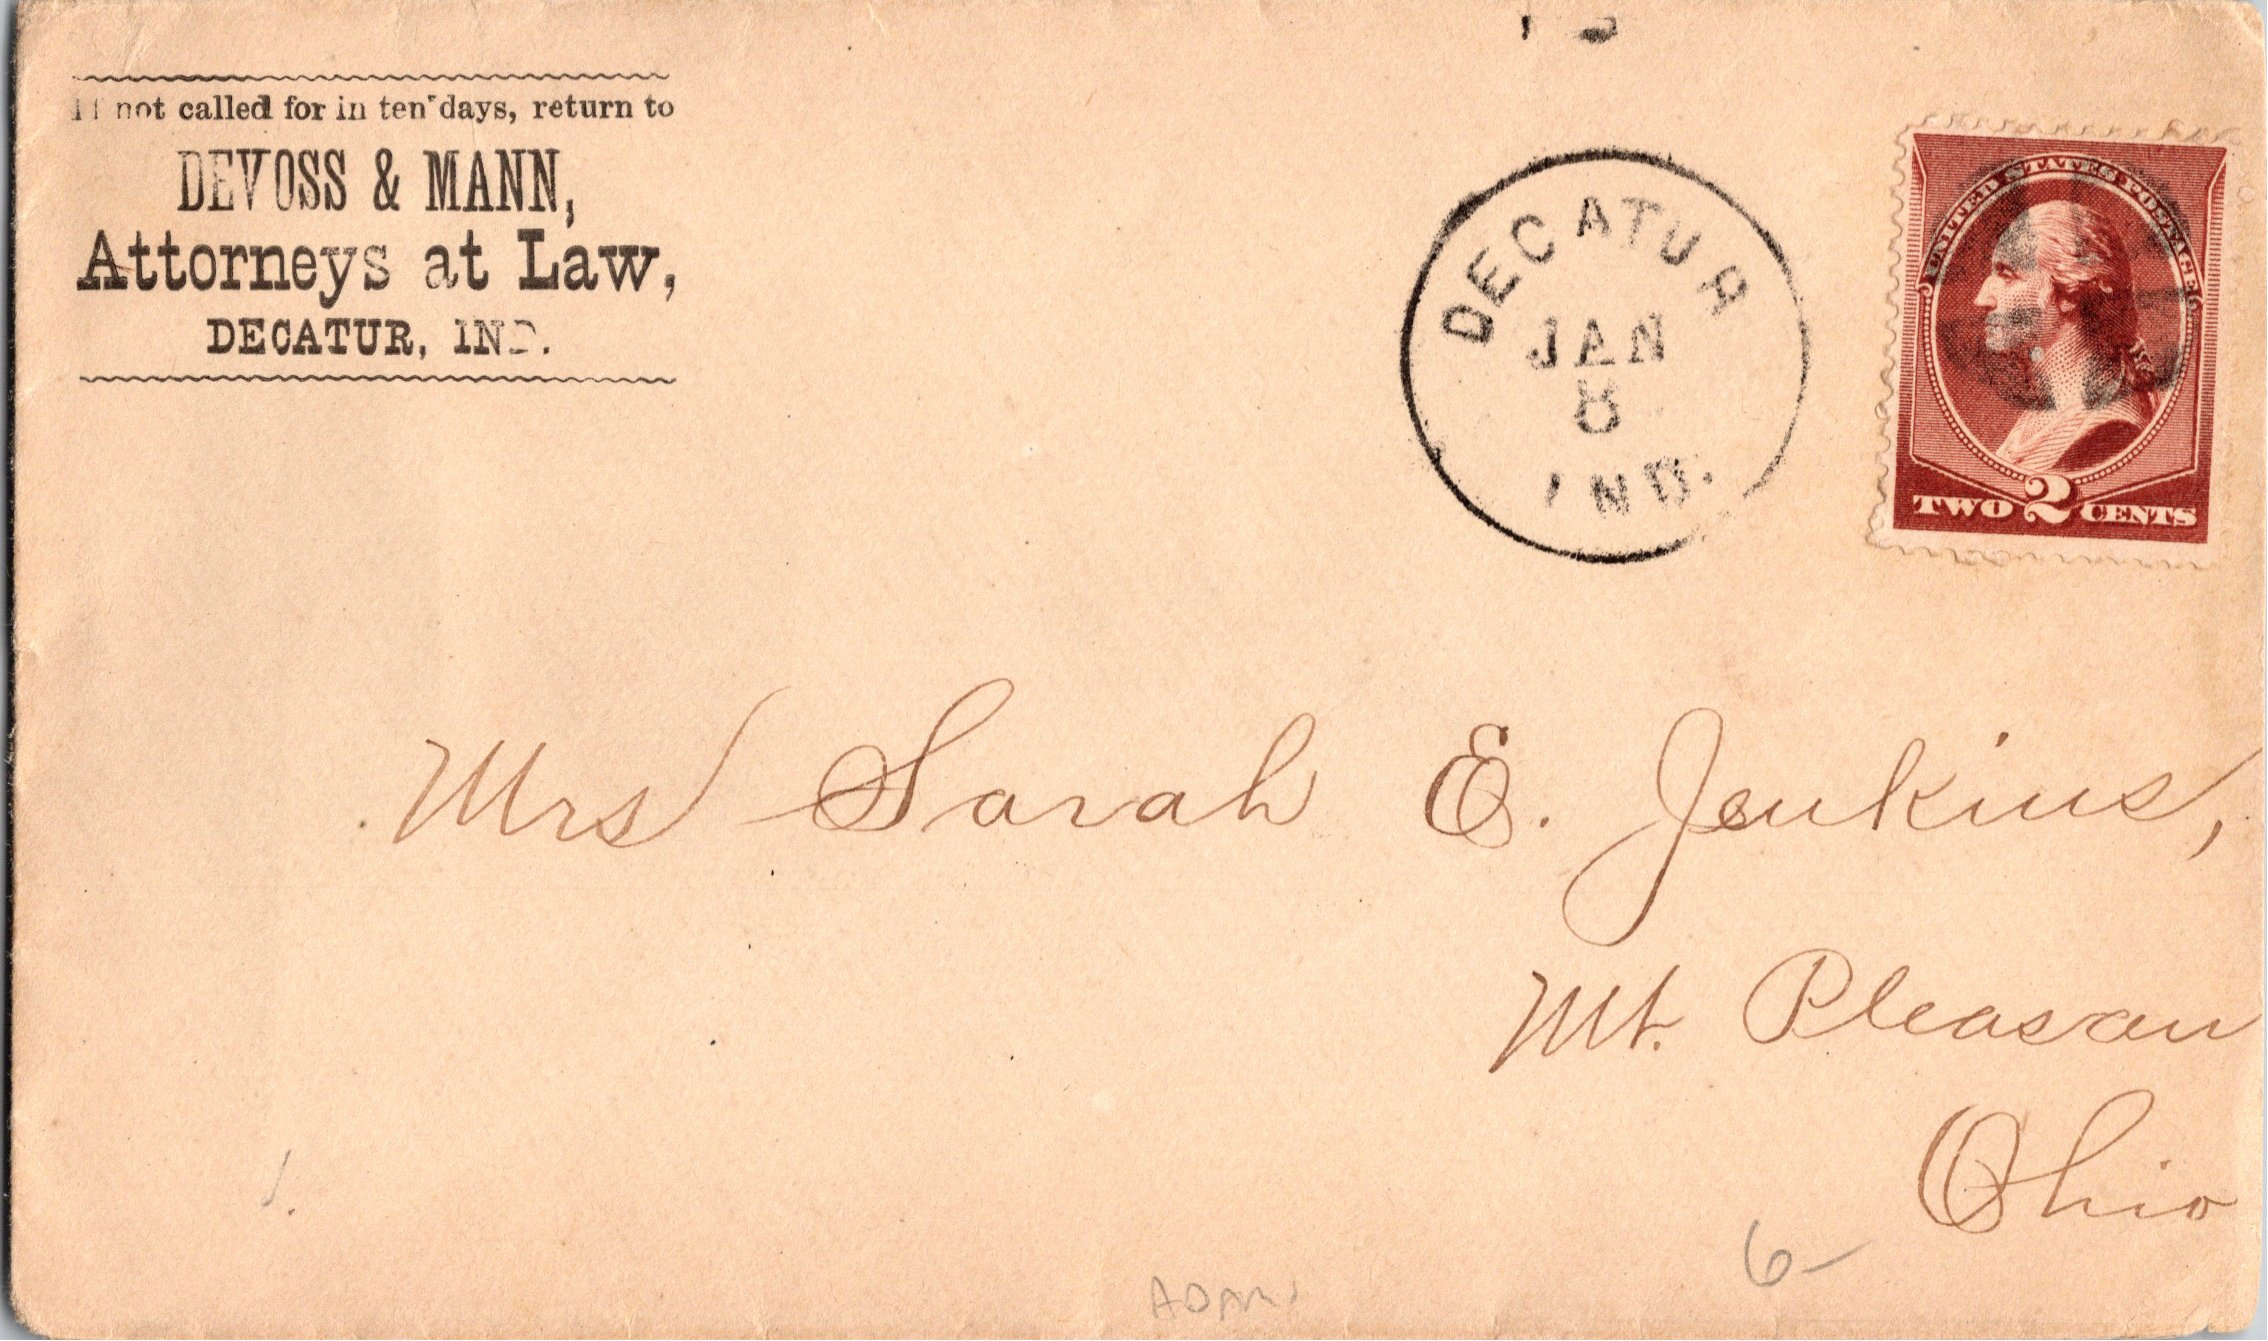 If not called for in ten days, return to
DEVOSS & MANN,
Attorneys at Law,
DECATUR, IND.
DECATUR
JAN
8
IND.
UNITED STATES POSTAGE
TWO 2 CENTS
Mrs Sarah E. Jenkins,
Mt. Pleasan
Ohio
6-